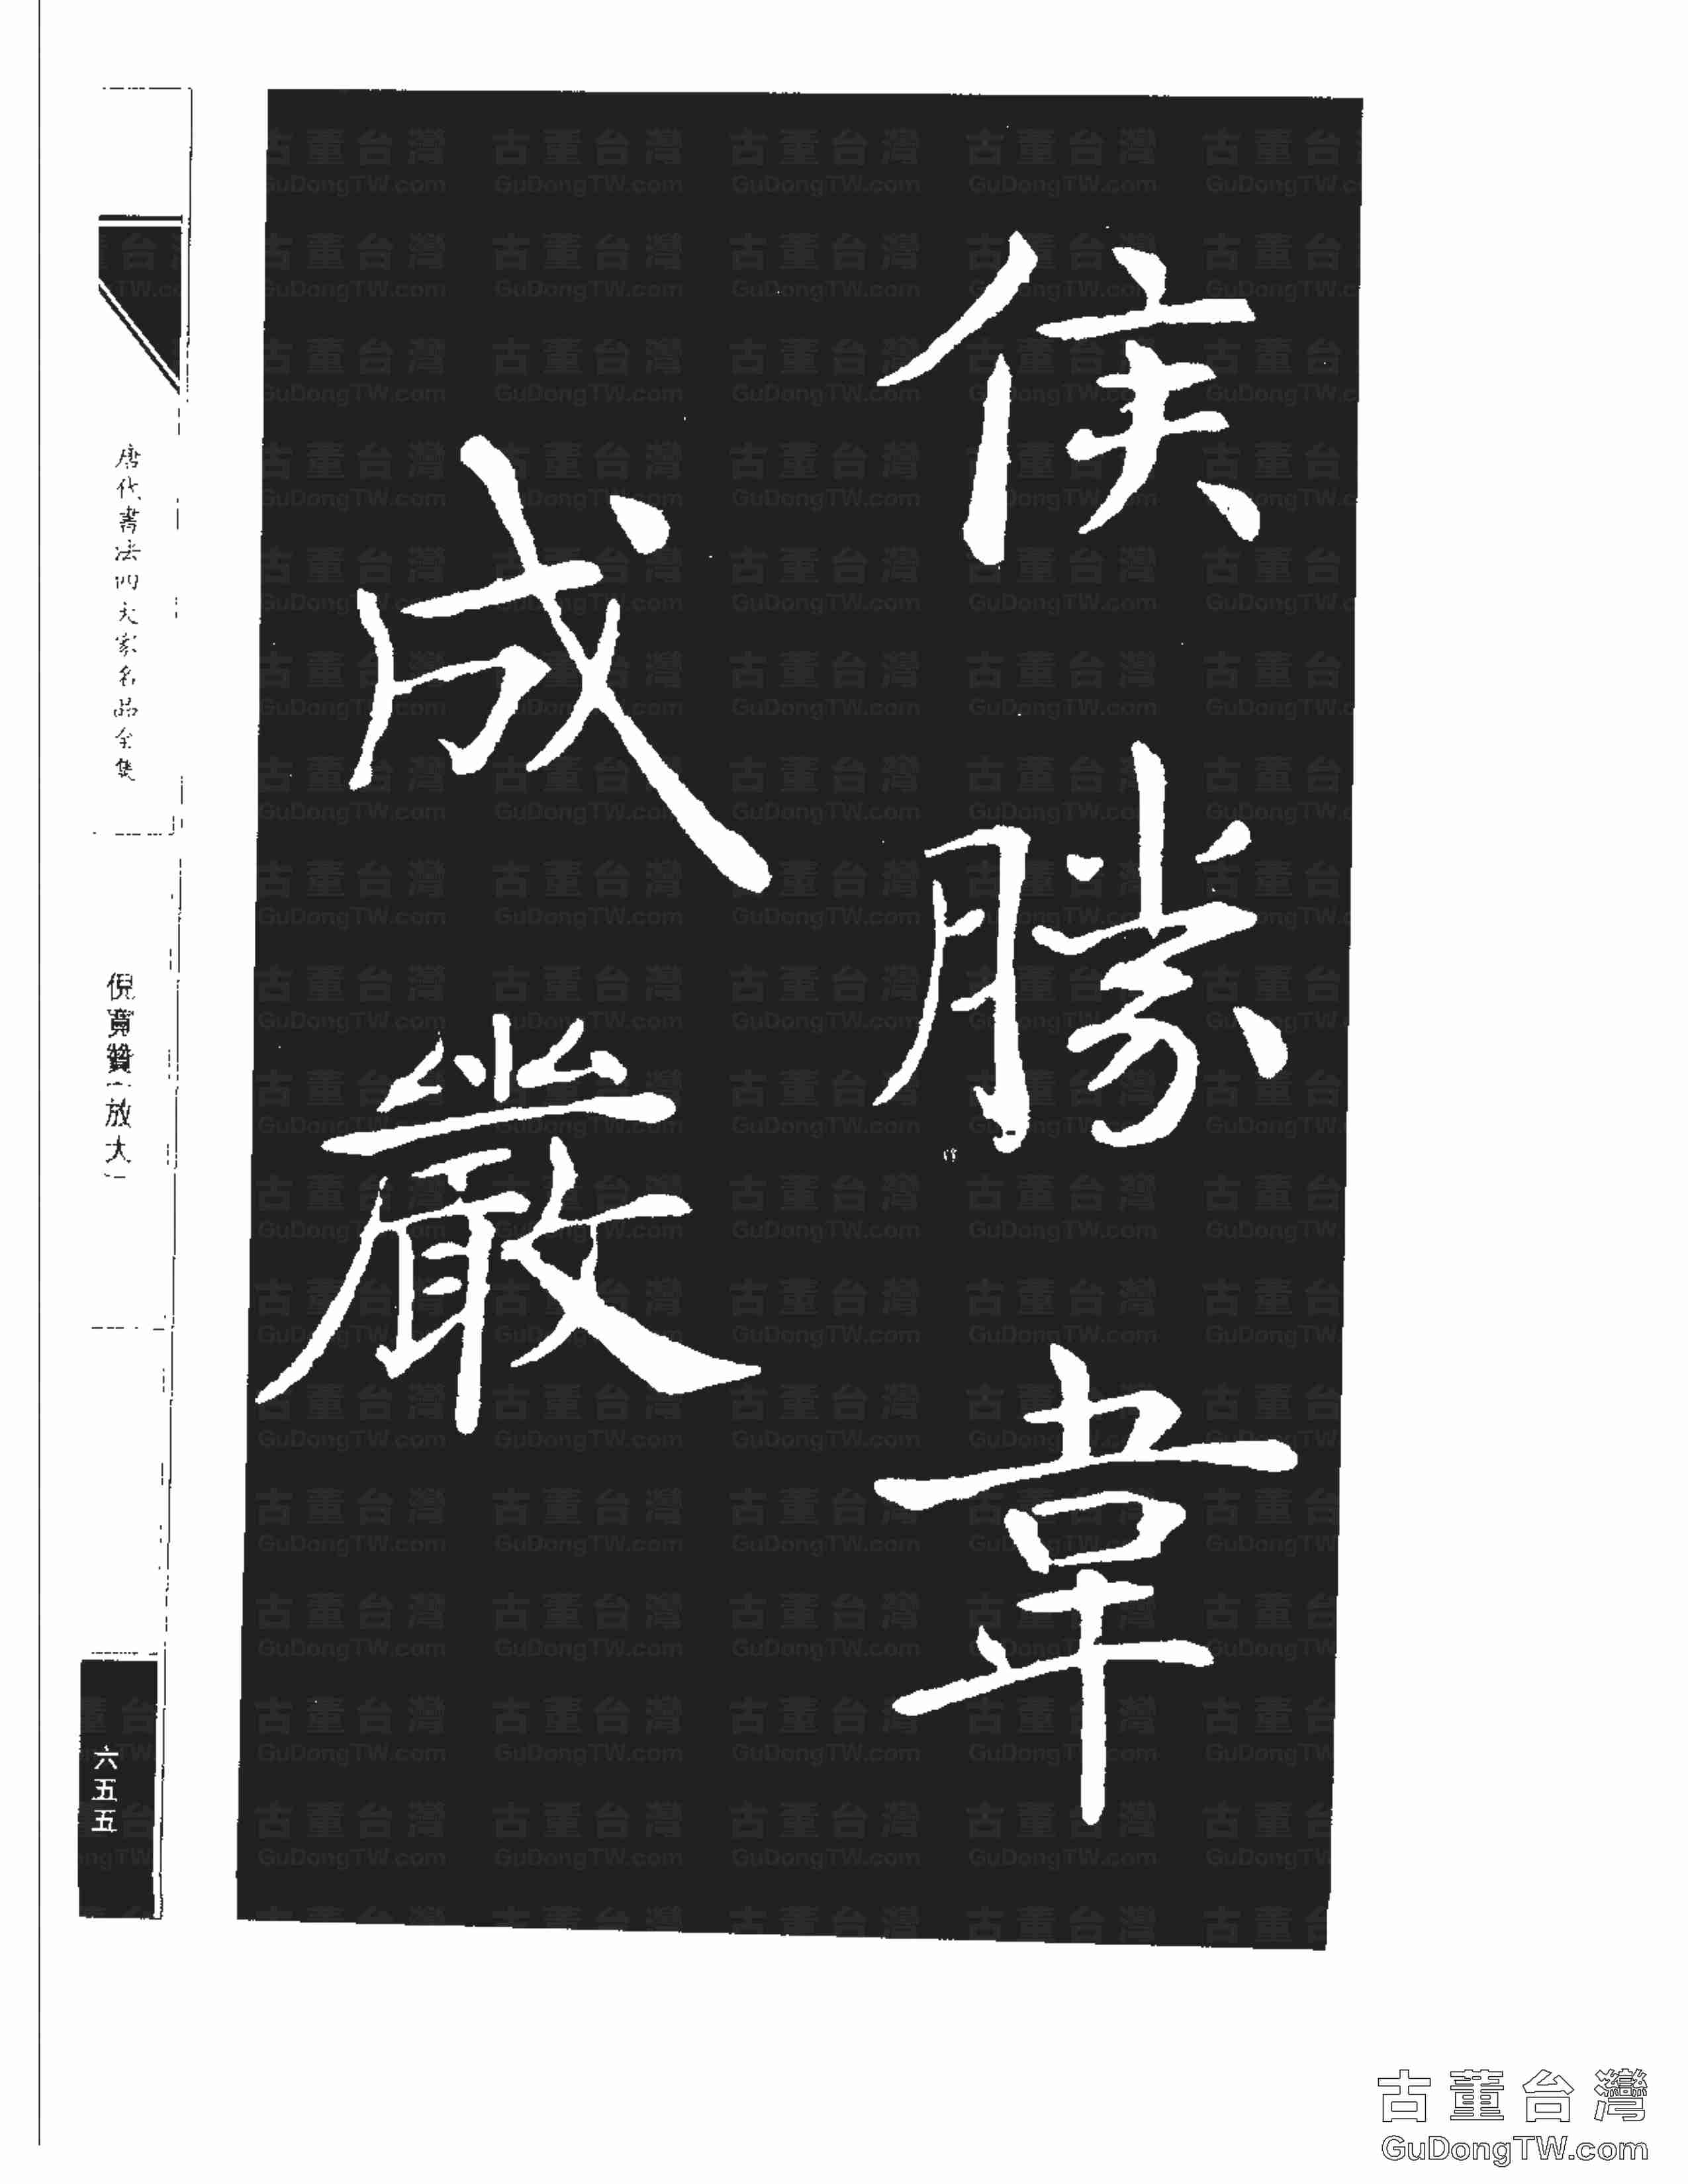 侯勝韋
成嚴
唐代書法四大家名品全集
倪寬贊(放大)
六五五
古董台灣
GuDongTW.com